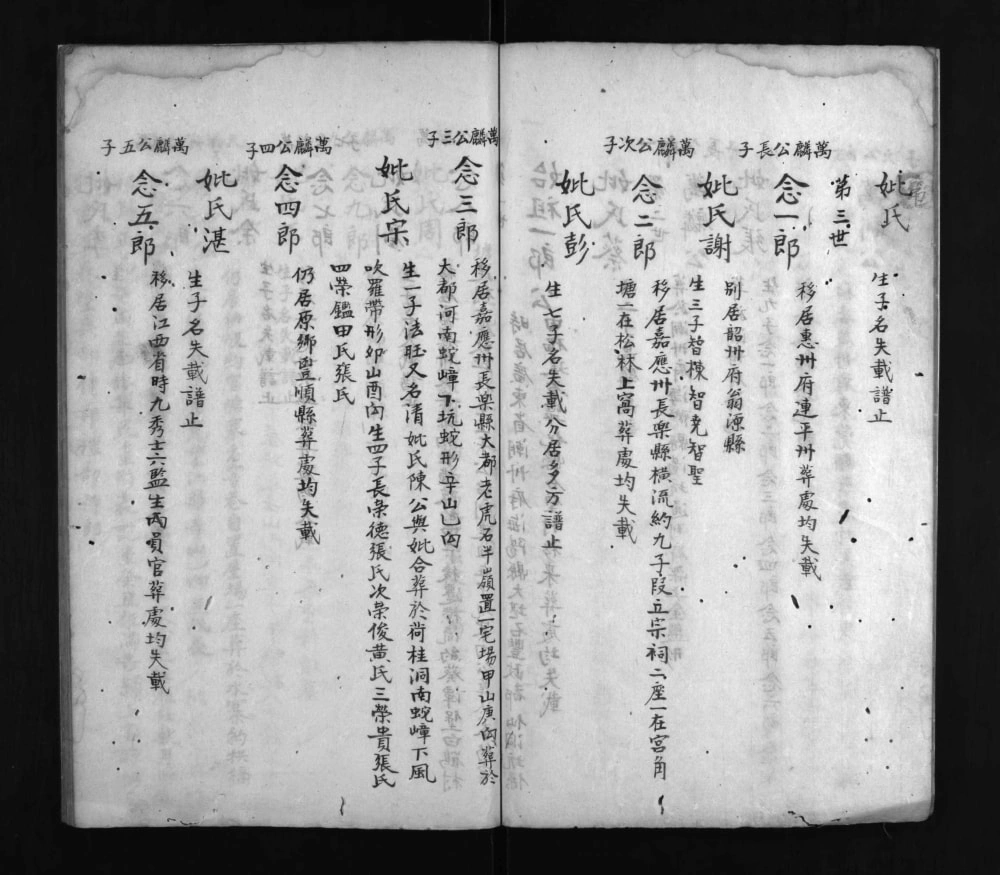 妣氏
生子名失載譜止
第三世
萬麟公長子
念一郎
移居惠州府連平州葬處均失載
妣氏謝
別居韶州府翁源縣
生三子智棟智堯智聖
萬麟公次子
念二郎
移居嘉應州長樂縣橫流約九子段立宗祠二座一在宮角
塘一在松林上窩葬處均失載
妣氏彭
生七子名失載分居多方譜止
萬麟公三子
念三郎
移居嘉應州長樂縣大都老虎石半山嶺置一宅場甲山庚向葬於
大都河南蜿嶂下坑蛇形辛山乙向
妣氏宋
生一子法旺又名清妣氏陳公與妣合葬於荷桂洞南蜿嶂下風
吹羅帶形卯山酉向生四子長榮德張氏次榮俊黃氏三榮貴張氏
四榮鑑田氏張氏
萬麟公四子
念四郎
仍居原鄉豊順縣葬處均失載
妣氏湛
生子名失載譜止
萬麟公五子
念五郎
移居江西省時九秀士六監生兩員官葬處均失載